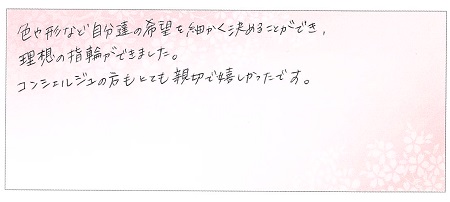 色や形など自分達の希望を細かく決めることができ、
理想の指輪ができました。
コンシェルジュの方もとても親切で嬉しかったです。